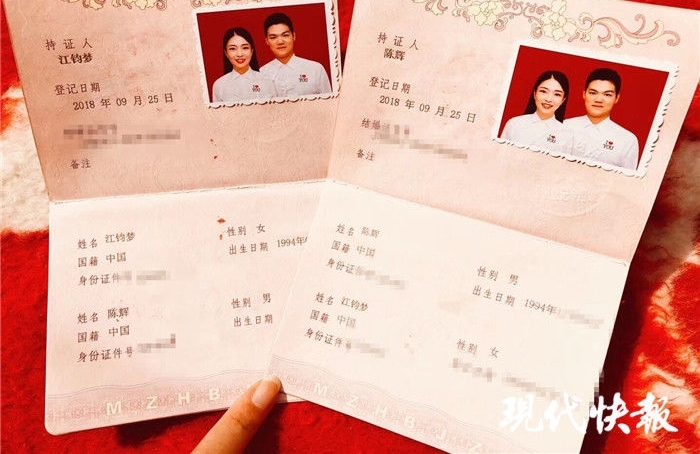 持证人
江钧梦
登记日期
2018 年 09 月 25 日
备注
姓名 江钧梦 性别 女
国籍 中国 出生日期 1994年
身份证件号
姓名 陈辉 性别 男
国籍 中国 出生日期
身份证件号
MZHB
持证人
陈辉
登记日期
2018 年 09 月 25 日
结婚
备注
姓名 陈辉 性别 男
国籍 中国 出生日期 1994年
身份证件号
姓名 江钧梦 性别 女
国籍 中国
身份证件号
MZHBJZ
现代快报